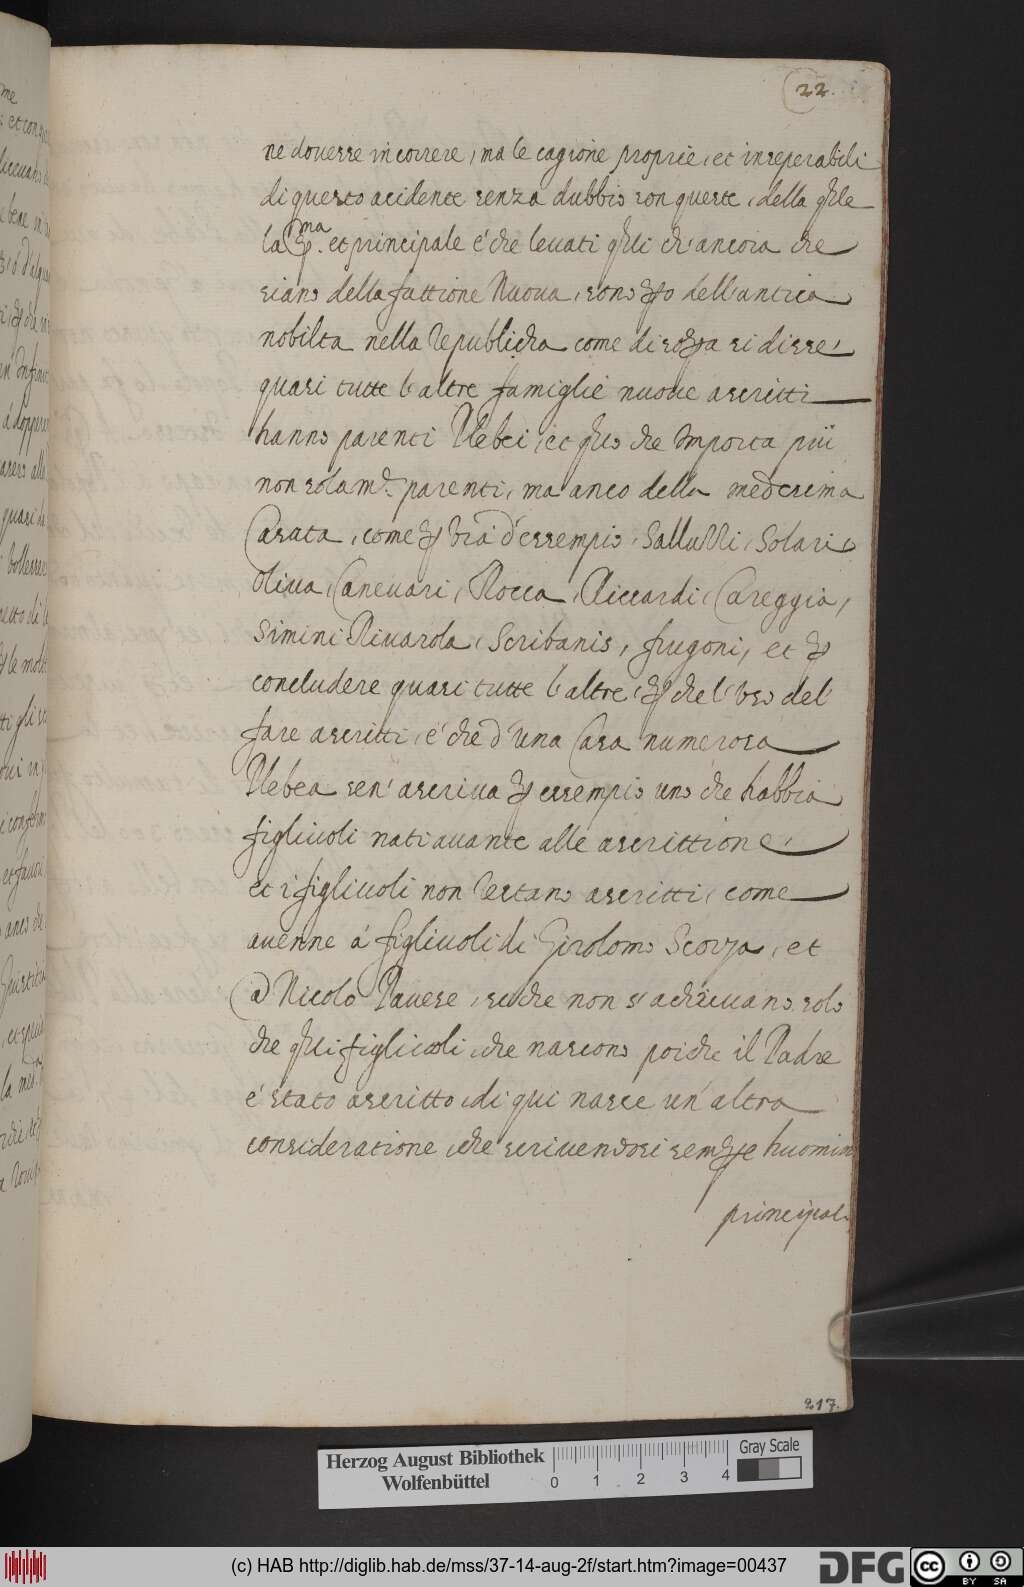 22
ne douesse incorrere, ma le cagione proprie, et inseperabili
di questo acidente senza dubbio son queste, della qle
la pma. et principale é che levati qli ch'ancora che
siano della fattione Nuova, sono pò dell'antica
nobilta nella republicha come di sopra si disse,
quasi tutte l'altre famiglie nuove ascritti
hanno parenti Plebei, et qlo che importa più
non solamte. parenti, ma anco della medesima
Casata, come p via d'essempio, Salluzzi, Solari,
Oliva, Canevari, Rocca, Riccardi, Careggia,
Simini Rivarola, Scribanis, frugoni, et p
concludere quasi tutte l'altre, p che l'uso del
fare ascritti, é che d'una Casa numerosa
Plebea sen'ascriva p essempio uno che habbia
figliuoli nati avante alle ascrittione,
et i figliuoli non restano ascritti, come
avenne á figliuoli di Girolomo Scorza, et
a Nicolò Pavese, si che non s'achrevano solo
che qlli figliuoli, che nascono poi che il Padre
é stato ascritto, di qui nasce un'altra
consideratione, che scrivendosi sempre huomin
principal.
217.
Herzog August Bibliothek
Wolfenbüttel
0 1 2 3 4
Gray Scale
(c) HAB http://diglib.hab.de/mss/37-14-aug-2f/start.htm?image=00437
DFG
CC BY SA